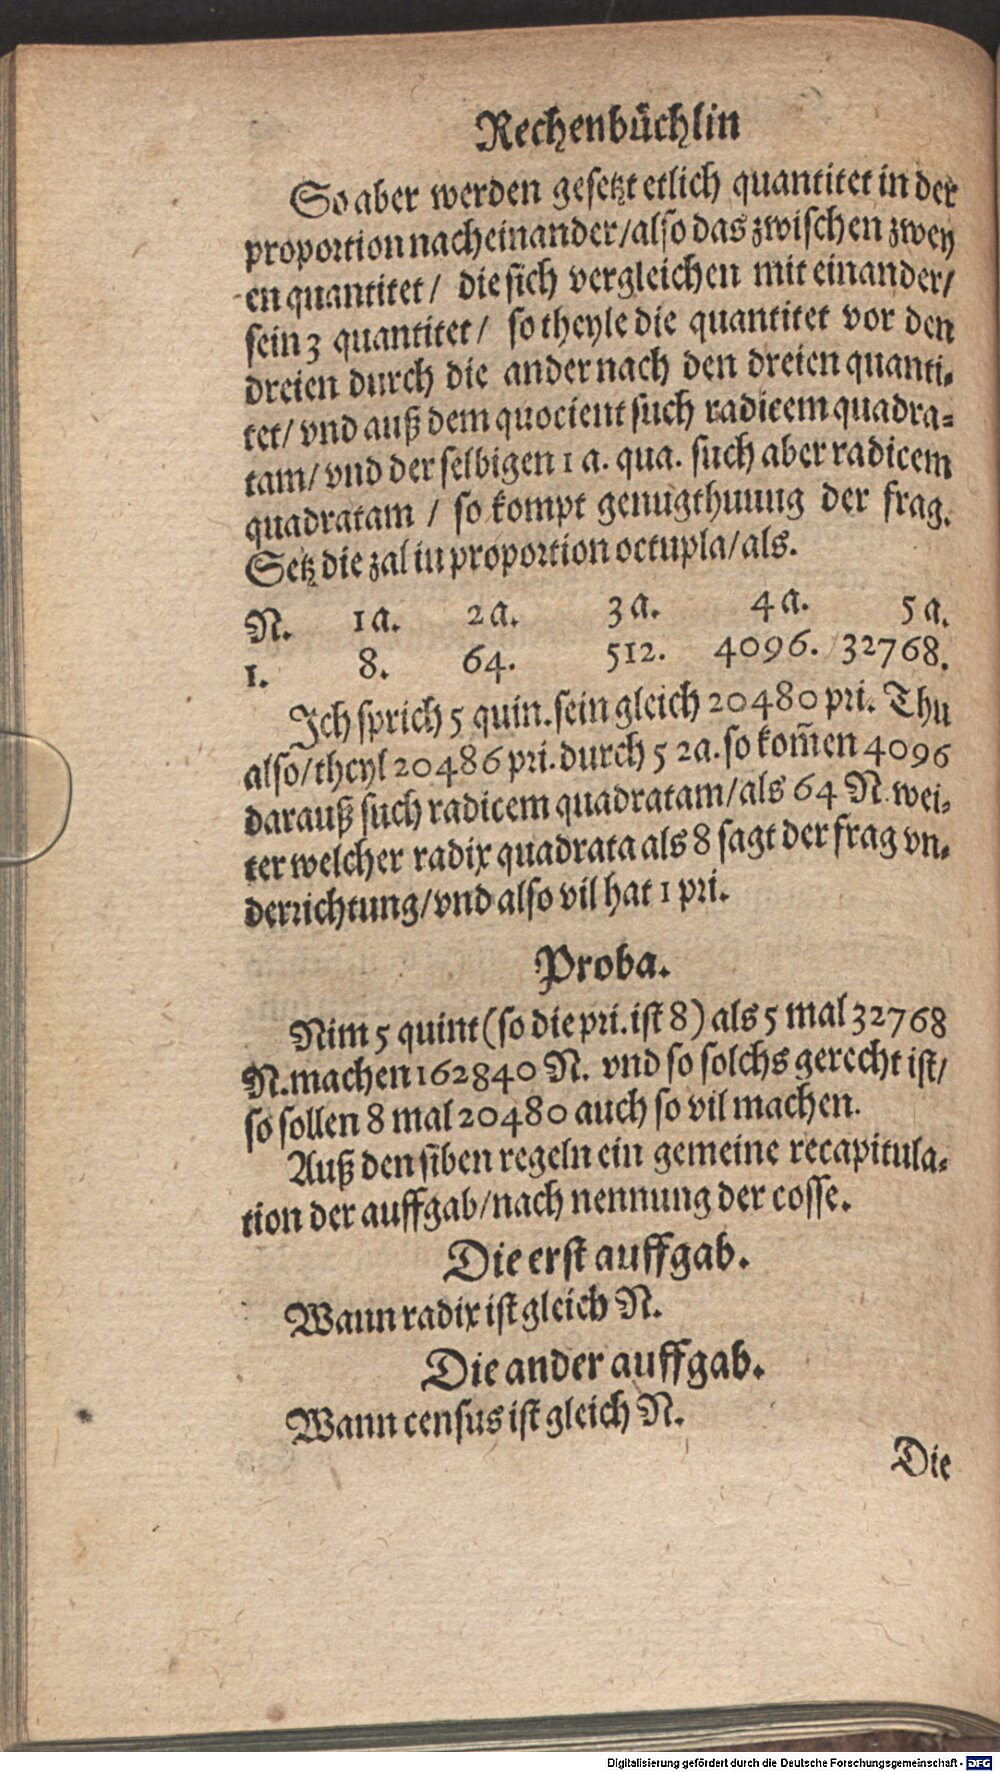 Rechenbüchlin
So aber werden gesetzt etlich quantitet in der
proportion nacheinander/also das zwischen zwey
en quantitet/ die sich vergleichen mit einander/
sein 3 quantitet/ so theyle die quantitet vor den
dreien durch die ander nach den dreien quanti-
tet/ vnd auß dem quocient such radicem quadra-
tam/ vnd der selbigen 1 a. qua. such aber radicem
quadratam / so kompt genugthuuug der frag.
Setz die zal iu proportion octupla/als.
N. 1 a. 2 a. 3 a. 4 a. 5 a.
1. 8. 64. 512. 4096. 32768.
Ich sprich 5 quin. sein gleich 20480 pri. Thu
also/theyl 20486 pri. durch 5 2a. so kom̃en 4096
darauß such radicem quadratam/als 64 N. wei-
ter welcher radix quadrata als 8 sagt der frag vn-
derrichtung/vnd also vil hat 1 pri.
Proba.
Nim 5 quint (so die pri. ist 8) als 5 mal 32768
N. machen 162840 N. vnd so solchs gerecht ist/
so sollen 8 mal 20480 auch so vil machen.
Auß den siben regeln ein gemeine recapitula-
tion der auffgab/nach nennung der cosse.
Die erst auffgab.
Wann radix ist gleich N.
Die ander auffgab.
Wann census ist gleich N.
Die
Digitalisierung gefördert durch die Deutsche Forschungsgemeinschaft - DFG